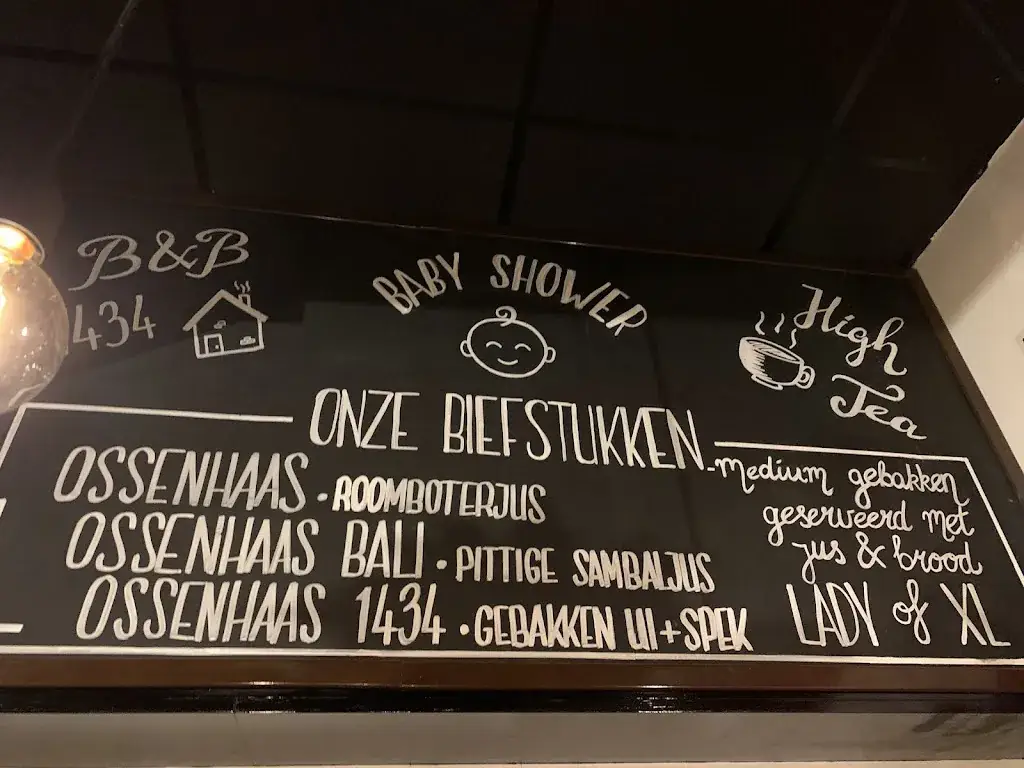 B&B
1434
BABY SHOWER
High
Tea
ONZE BIEFSTUKKEN
OSSENHAAS · ROOMBOTERJUS
OSSENHAAS BALI · PITTIGE SAMBALJUS
OSSENHAAS 1434 · GEBAKKEN UI + SPEK
- medium gebakken
geserveerd met
jus & brood
LADY of XL